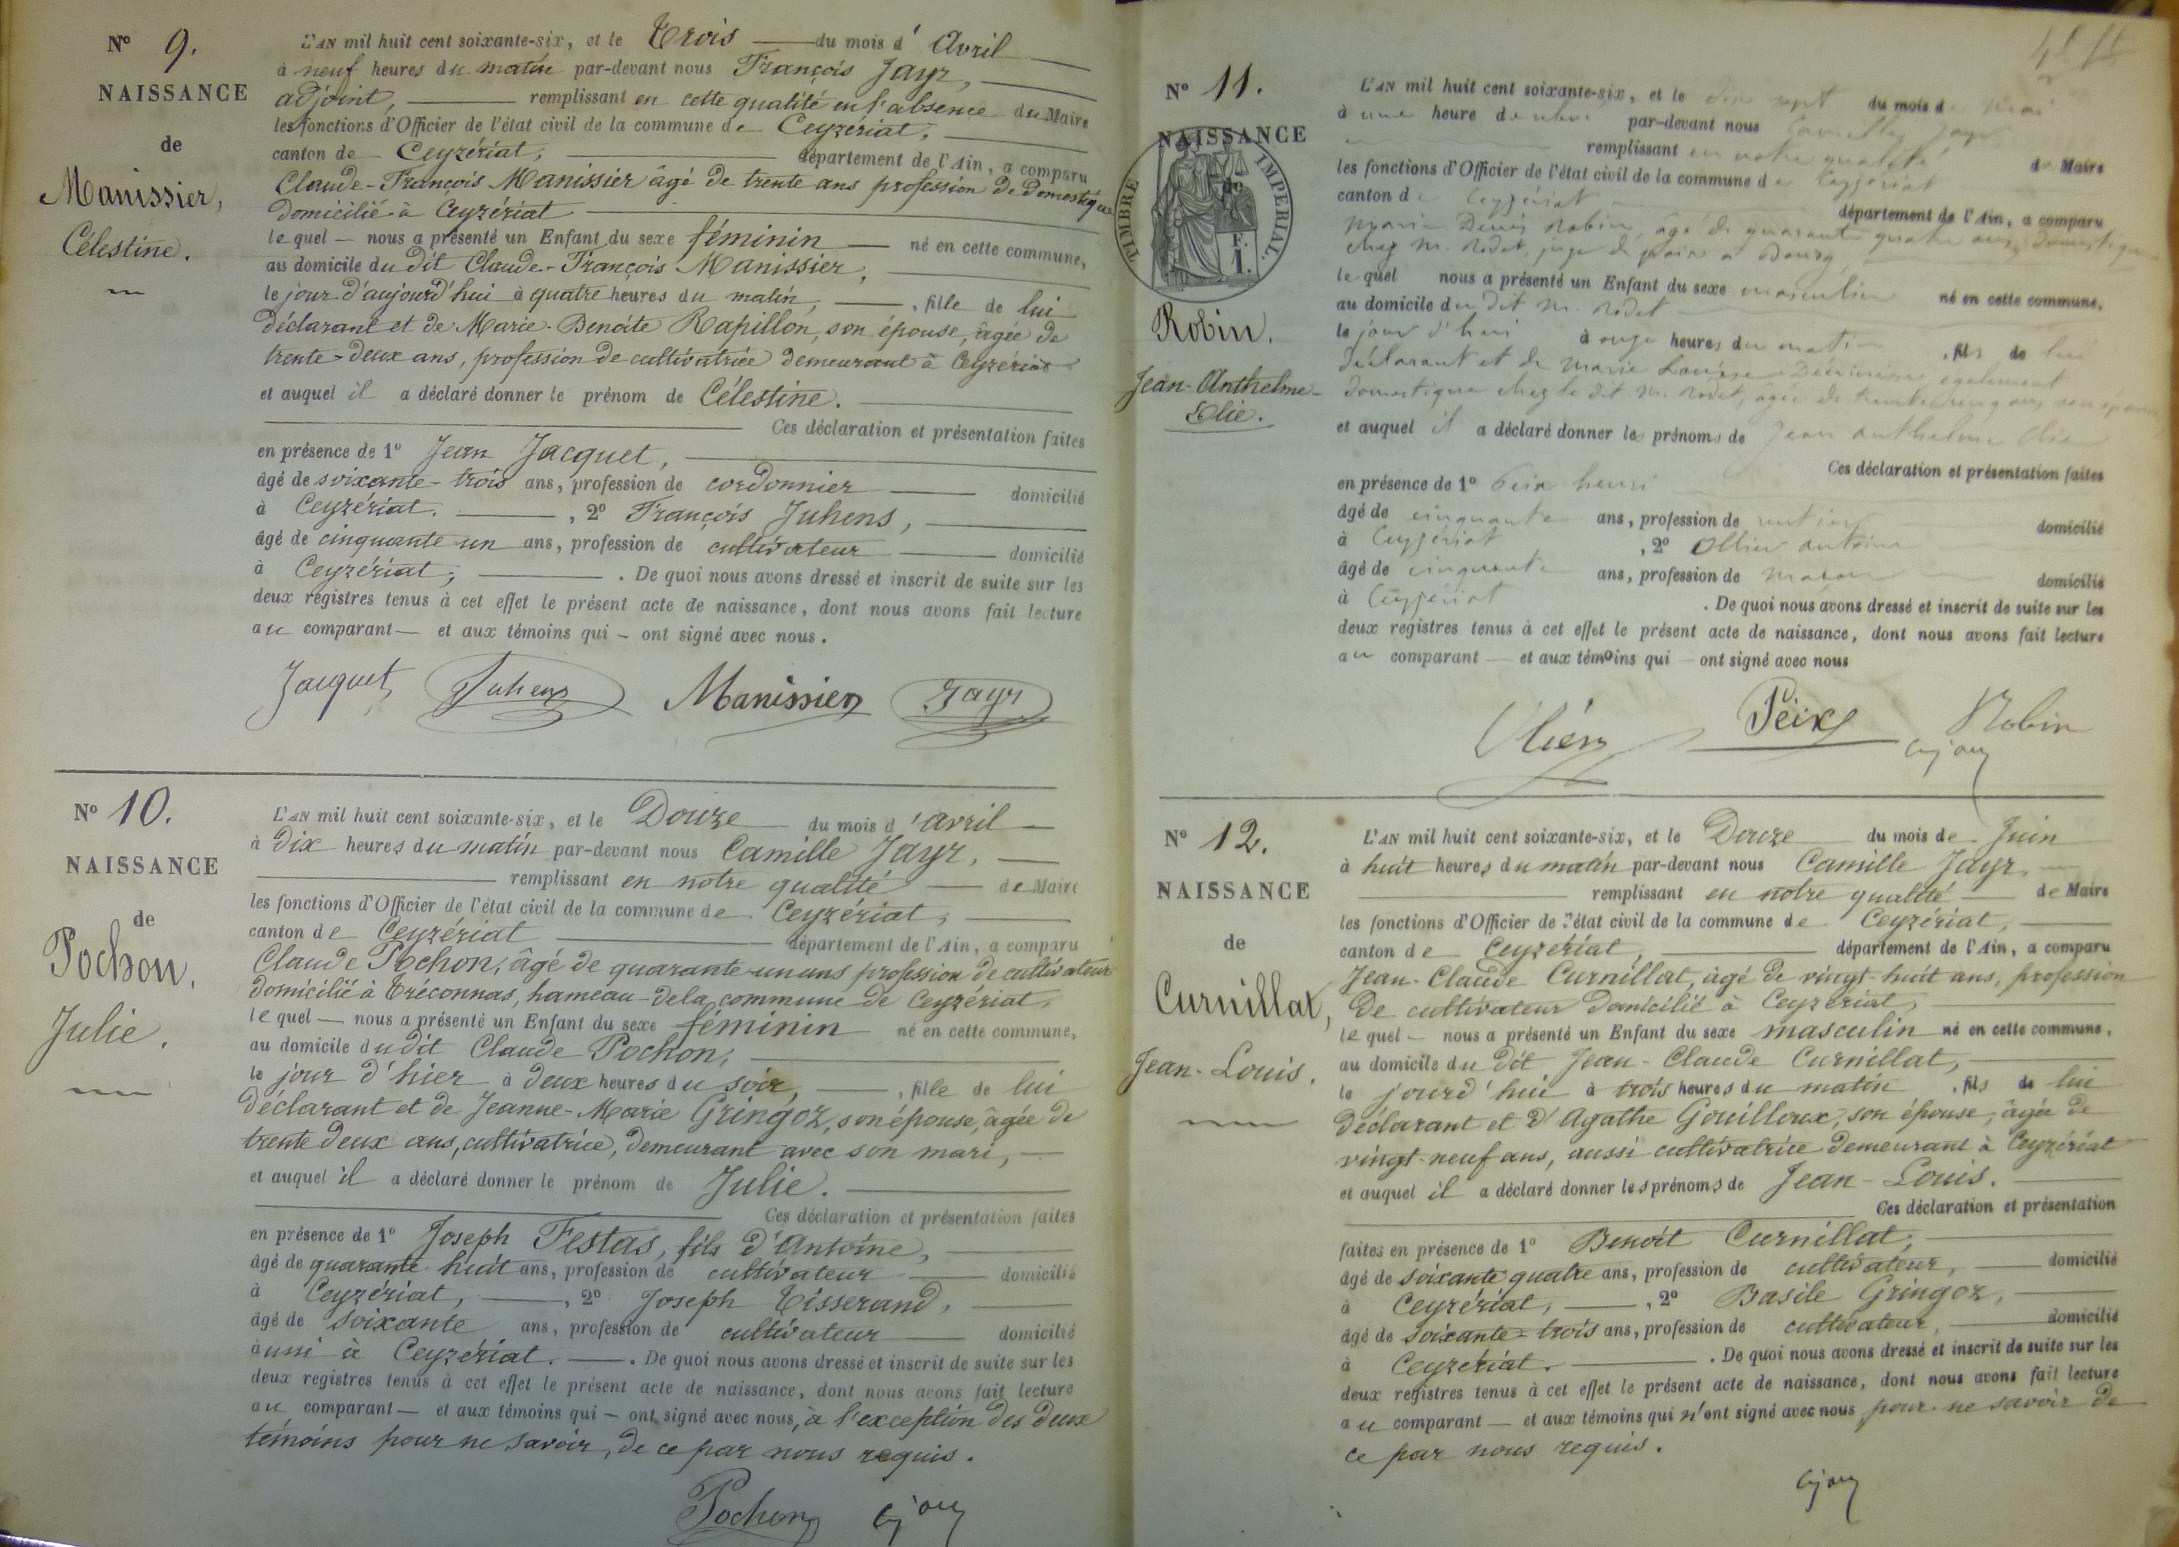 N° 9.
NAISSANCE
de
Manissier,
Célestine.
L'AN mil huit cent soixante-six, et le Trois du mois d'Avril
à neuf heures du matin par-devant nous François Jayr,
adjoint, remplissant en cette qualité en l'absence du Maire
les fonctions d'Officier de l'état civil de la commune de Ceyzériat,
canton de Ceyzériat, département de l'Ain, a comparu
Claude-François Manissier âgé de trente ans profession de domestique
domicilié à Ceyzériat
lequel — nous a présenté un Enfant du sexe féminin — né en cette commune,
au domicile du dit Claude-François Manissier,
le jour d'aujourd'hui à quatre heures du matin, fille de lui
déclarant et de Marie-Benoite Rapillon, son épouse, âgée de
trente-deux ans, profession de cultivatrice demeurant à Ceyzériat
et auquel il a déclaré donner le prénom de Célestine.
Ces déclaration et présentation faites
en présence de 1° Jean Jacquet,
âgé de soixante-trois ans, profession de cordonnier domicilié
à Ceyzériat. , 2° François Juhens,
âgé de cinquante-un ans, profession de cultivateur domicilié
à Ceyzériat, . De quoi nous avons dressé et inscrit de suite sur les
deux registres tenus à cet effet le présent acte de naissance, dont nous avons fait lecture
au comparant — et aux témoins qui — ont signé avec nous.
Jacquet Juhens Manissier Jayr
N° 10.
NAISSANCE
de
Pochon,
Julie.
L'AN mil huit cent soixante-six, et le Douze du mois d'avril
à dix heures du matin par-devant nous Camille Jayr,
remplissant en notre qualité de Maire
les fonctions d'Officier de l'état civil de la commune de Ceyzériat,
canton de Ceyzériat département de l'Ain, a comparu
Claude Pochon, âgé de quarante-un ans profession de cultivateur
domicilié à Tréconnas, hameau de la commune de Ceyzériat,
lequel — nous a présenté un Enfant du sexe féminin né en cette commune,
au domicile du dit Claude Pochon,
le jour d'hier à deux heures du soir, fille de lui
déclarant et de Jeanne-Marie Gringoz, son épouse, âgée de
trente deux ans, cultivatrice, demeurant avec son mari,
et auquel il a déclaré donner le prénom de Julie.
Ces déclaration et présentation faites
en présence de 1° Joseph Festas, fils d'Antoine,
âgé de quarante-huit ans, profession de cultivateur domicilié
à Ceyzériat, , 2° Joseph Tisserand,
âgé de soixante ans, profession de cultivateur domicilié
aussi à Ceyzériat. . De quoi nous avons dressé et inscrit de suite sur les
deux registres tenus à cet effet le présent acte de naissance, dont nous avons fait lecture
au comparant — et aux témoins qui — ont signé avec nous, à l'exception des deux
témoins pour ne savoir, de ce par nous requis.
Pochon
N° 11.
NAISSANCE
de
TIMBRE IMPERIAL.
F.
1.
Robin.
Jean-Anthelme-
Elie.
L'AN mil huit cent soixante-six, et le dix sept du mois de mai
à une heure de par-devant nous Camille Jayr
remplissant en notre qualité de Maire
les fonctions d'Officier de l'état civil de la commune de Ceyzériat
canton de Ceyzériat département de l'Ain, a comparu
Marie Denis Robin, âgé de quarante quatre ans domestique
chez M. Rodet, juge de paix à Bourg
lequel nous a présenté un Enfant du sexe masculin né en cette commune,
au domicile du dit M. Rodet
le jour d'hui à onze heures du matin , fils de lui
déclarant et de Marie Louise également
domestique chez le dit M. Rodet, âgée de trente cinq ans, son épouse
et auquel il a déclaré donner les prénoms de Jean Anthelme Elie
Ces déclaration et présentation faites
en présence de 1° Peix henri
âgé de cinquante ans, profession de rentier domicilié
à Ceyzériat , 2° Ollier antoine
âgé de cinquante ans, profession de maçon domicilié
à Ceyzériat . De quoi nous avons dressé et inscrit de suite sur les
deux registres tenus à cet effet le présent acte de naissance, dont nous avons fait lecture
au comparant — et aux témoins qui — ont signé avec nous
Peix Robin
N° 12.
NAISSANCE
de
Curnillat,
Jean-Louis.
L'AN mil huit cent soixante-six, et le Douze du mois de Juin
à huit heures du matin par-devant nous Camille Jayr,
remplissant en notre qualité de Maire
les fonctions d'Officier de l'état civil de la commune de Ceyzériat,
canton de Ceyzériat, département de l'Ain, a comparu
Jean-Claude Curnillat, âgé de vingt-huit ans, profession
de cultivateur domicilié à Ceyzériat,
lequel — nous a présenté un Enfant du sexe masculin né en cette commune,
au domicile du dit Jean-Claude Curnillat,
le jourd'hui à trois heures du matin , fils de lui
déclarant et d'Agathe Gouilloux, son épouse, âgée de
vingt-neuf ans, aussi cultivatrice demeurant à Ceyzériat
et auquel il a déclaré donner les prénoms de Jean-Louis.
Ces déclaration et présentation
faites en présence de 1° Benoit Curnillat,
âgé de soixante quatre ans, profession de cultivateur, domicilié
à Ceyzériat, , 2° Basile Gringoz,
âgé de soixante-trois ans, profession de cultivateur, domicilié
à Ceyzériat. . De quoi nous avons dressé et inscrit de suite sur les
deux registres tenus à cet effet le présent acte de naissance, dont nous avons fait lecture
au comparant — et aux témoins qui n'ont signé avec nous pour ne savoir de
ce par nous requis.